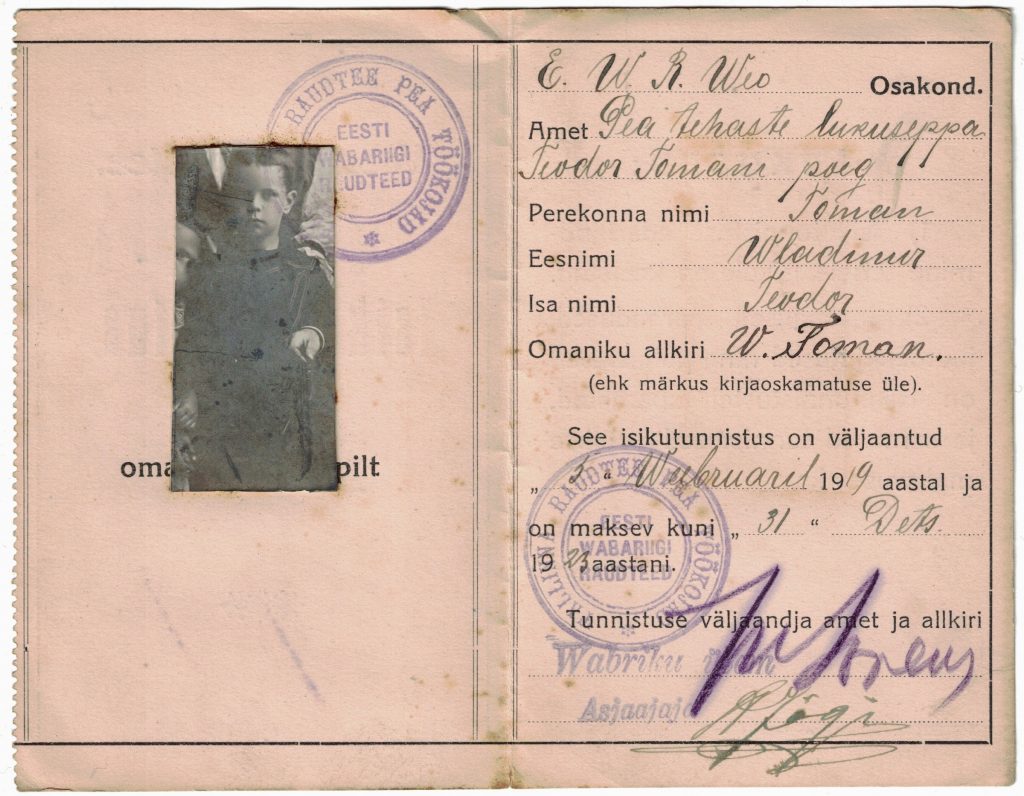 RAUDTEE PEA TÖÖKOJAD
EESTI
WABARIIGI
RAUDTEED
oma pilt
E. W. R. Weo Osakond.
Amet Pea tehaste lukuseppa
Teodor Tomani poeg
Perekonna nimi Toman
Eesnimi Wladimir
Isa nimi Teodor
Omaniku allkiri W. Toman.
(ehk märkus kirjaoskamatuse üle).
See isikutunnistus on väljaantud
„ 5 “ Weebruaril 1919 aastal ja
on maksev kuni „ 31 “ Dets.
1923 aastani.
TALLINNA RAUDTEE PEA TÖÖKOJAD
EESTI
WABARIIGI
RAUDTEED
Tunnistuse väljaandja amet ja allkiri
Wabriku ülem
Asjaajaja Jõgi